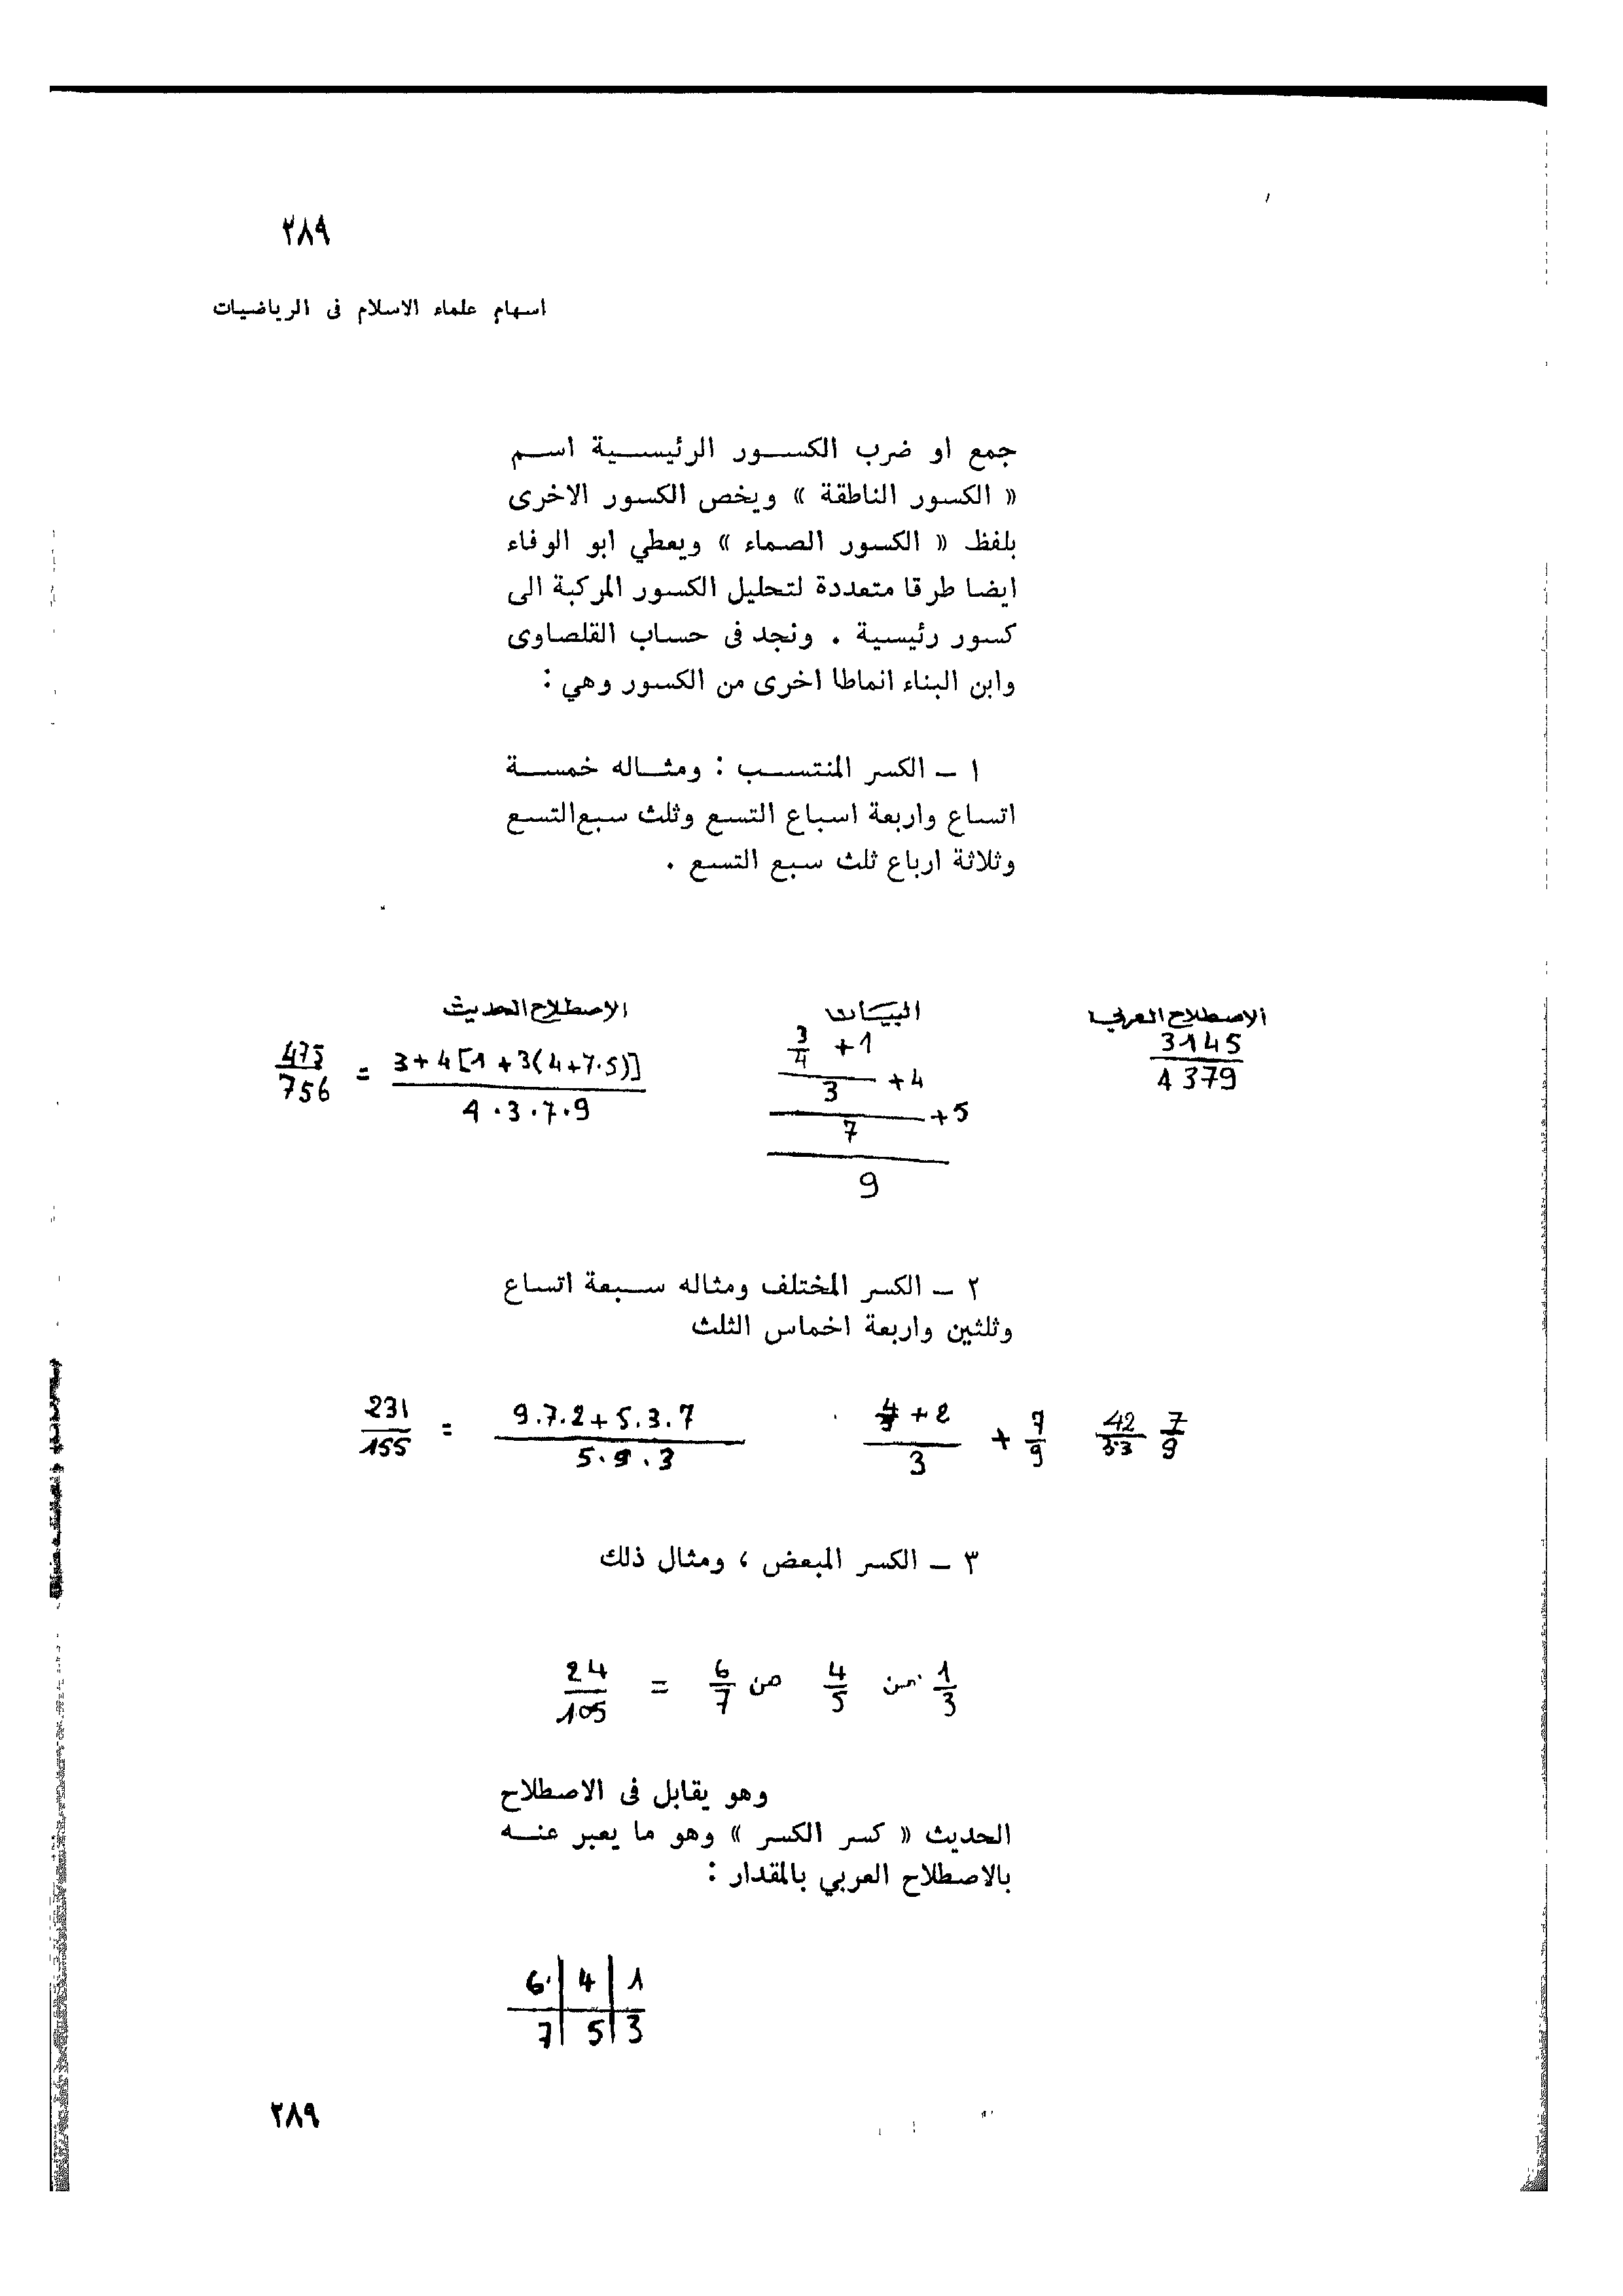 ٢٨٩
اسهام علماء الاسلام فى الرياضيات
جمع او ضرب الكسور الرئيسية اسم
« الكسور الناطقة » ويخص الكسور الاخرى
بلفظ « الكسور الصماء » ويعطي ابو الوفاء
ايضا طرقا متعددة لتحليل الكسور المركبة الى
كسور رئيسية . ونجد فى حساب القلصاوى
وابن البناء انماطا اخرى من الكسور وهي :
١ - الكسر المنتسب : ومثاله خمسة
اتساع واربعة اسباع التسع وثلث سبع التسع
وثلاثة ارباع ثلث سبع التسع .
الاصطلاح العربي
3145
4379
البيان
3/4 +1
3 +4
7 +5
9
الاصطلاح الحديث
475/756 = 3+4[1+3(4+7.5)]
4.3.7.9
٢ - الكسر المختلف ومثاله سبعة اتساع
وثلثين واربعة اخماس الثلث
7/9 42/53
7/9 + +2
3
231/155 = 9.7.2+5.3.7
5.9.3
٣ - الكسر المبعض ، ومثال ذلك
1/3 من 4/5 من 6/7 = 24/105
وهو يقابل فى الاصطلاح
الحديث « كسر الكسر » وهو ما يعبر عنه
بالاصطلاح العربي بالمقدار :
6 | 4 | 1
7 | 5 | 3
٢٨٩